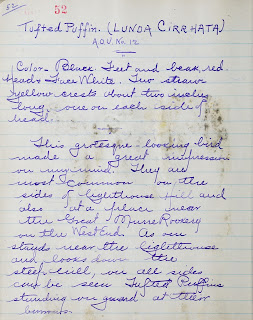 52
52
Tufted Puffin. (LUNDA CIRRHATA)
A.O.U. No. 12
Color - Black. Feet and beak, red.
Head & Face White. Two straw
yellow crests about two inches
long, one on each side of
head.
This grotesque looking bird
made a great impression
on my mind. They are
most common on the
sides of Lighthouse Hill, and
also at a place near
the Great Murre Rookery
on the West End. As one
stands near the Lighthouse
and looks down the
steep hill, on all sides
can be seen Tufted Puffins
standing on guard at their
burrows.